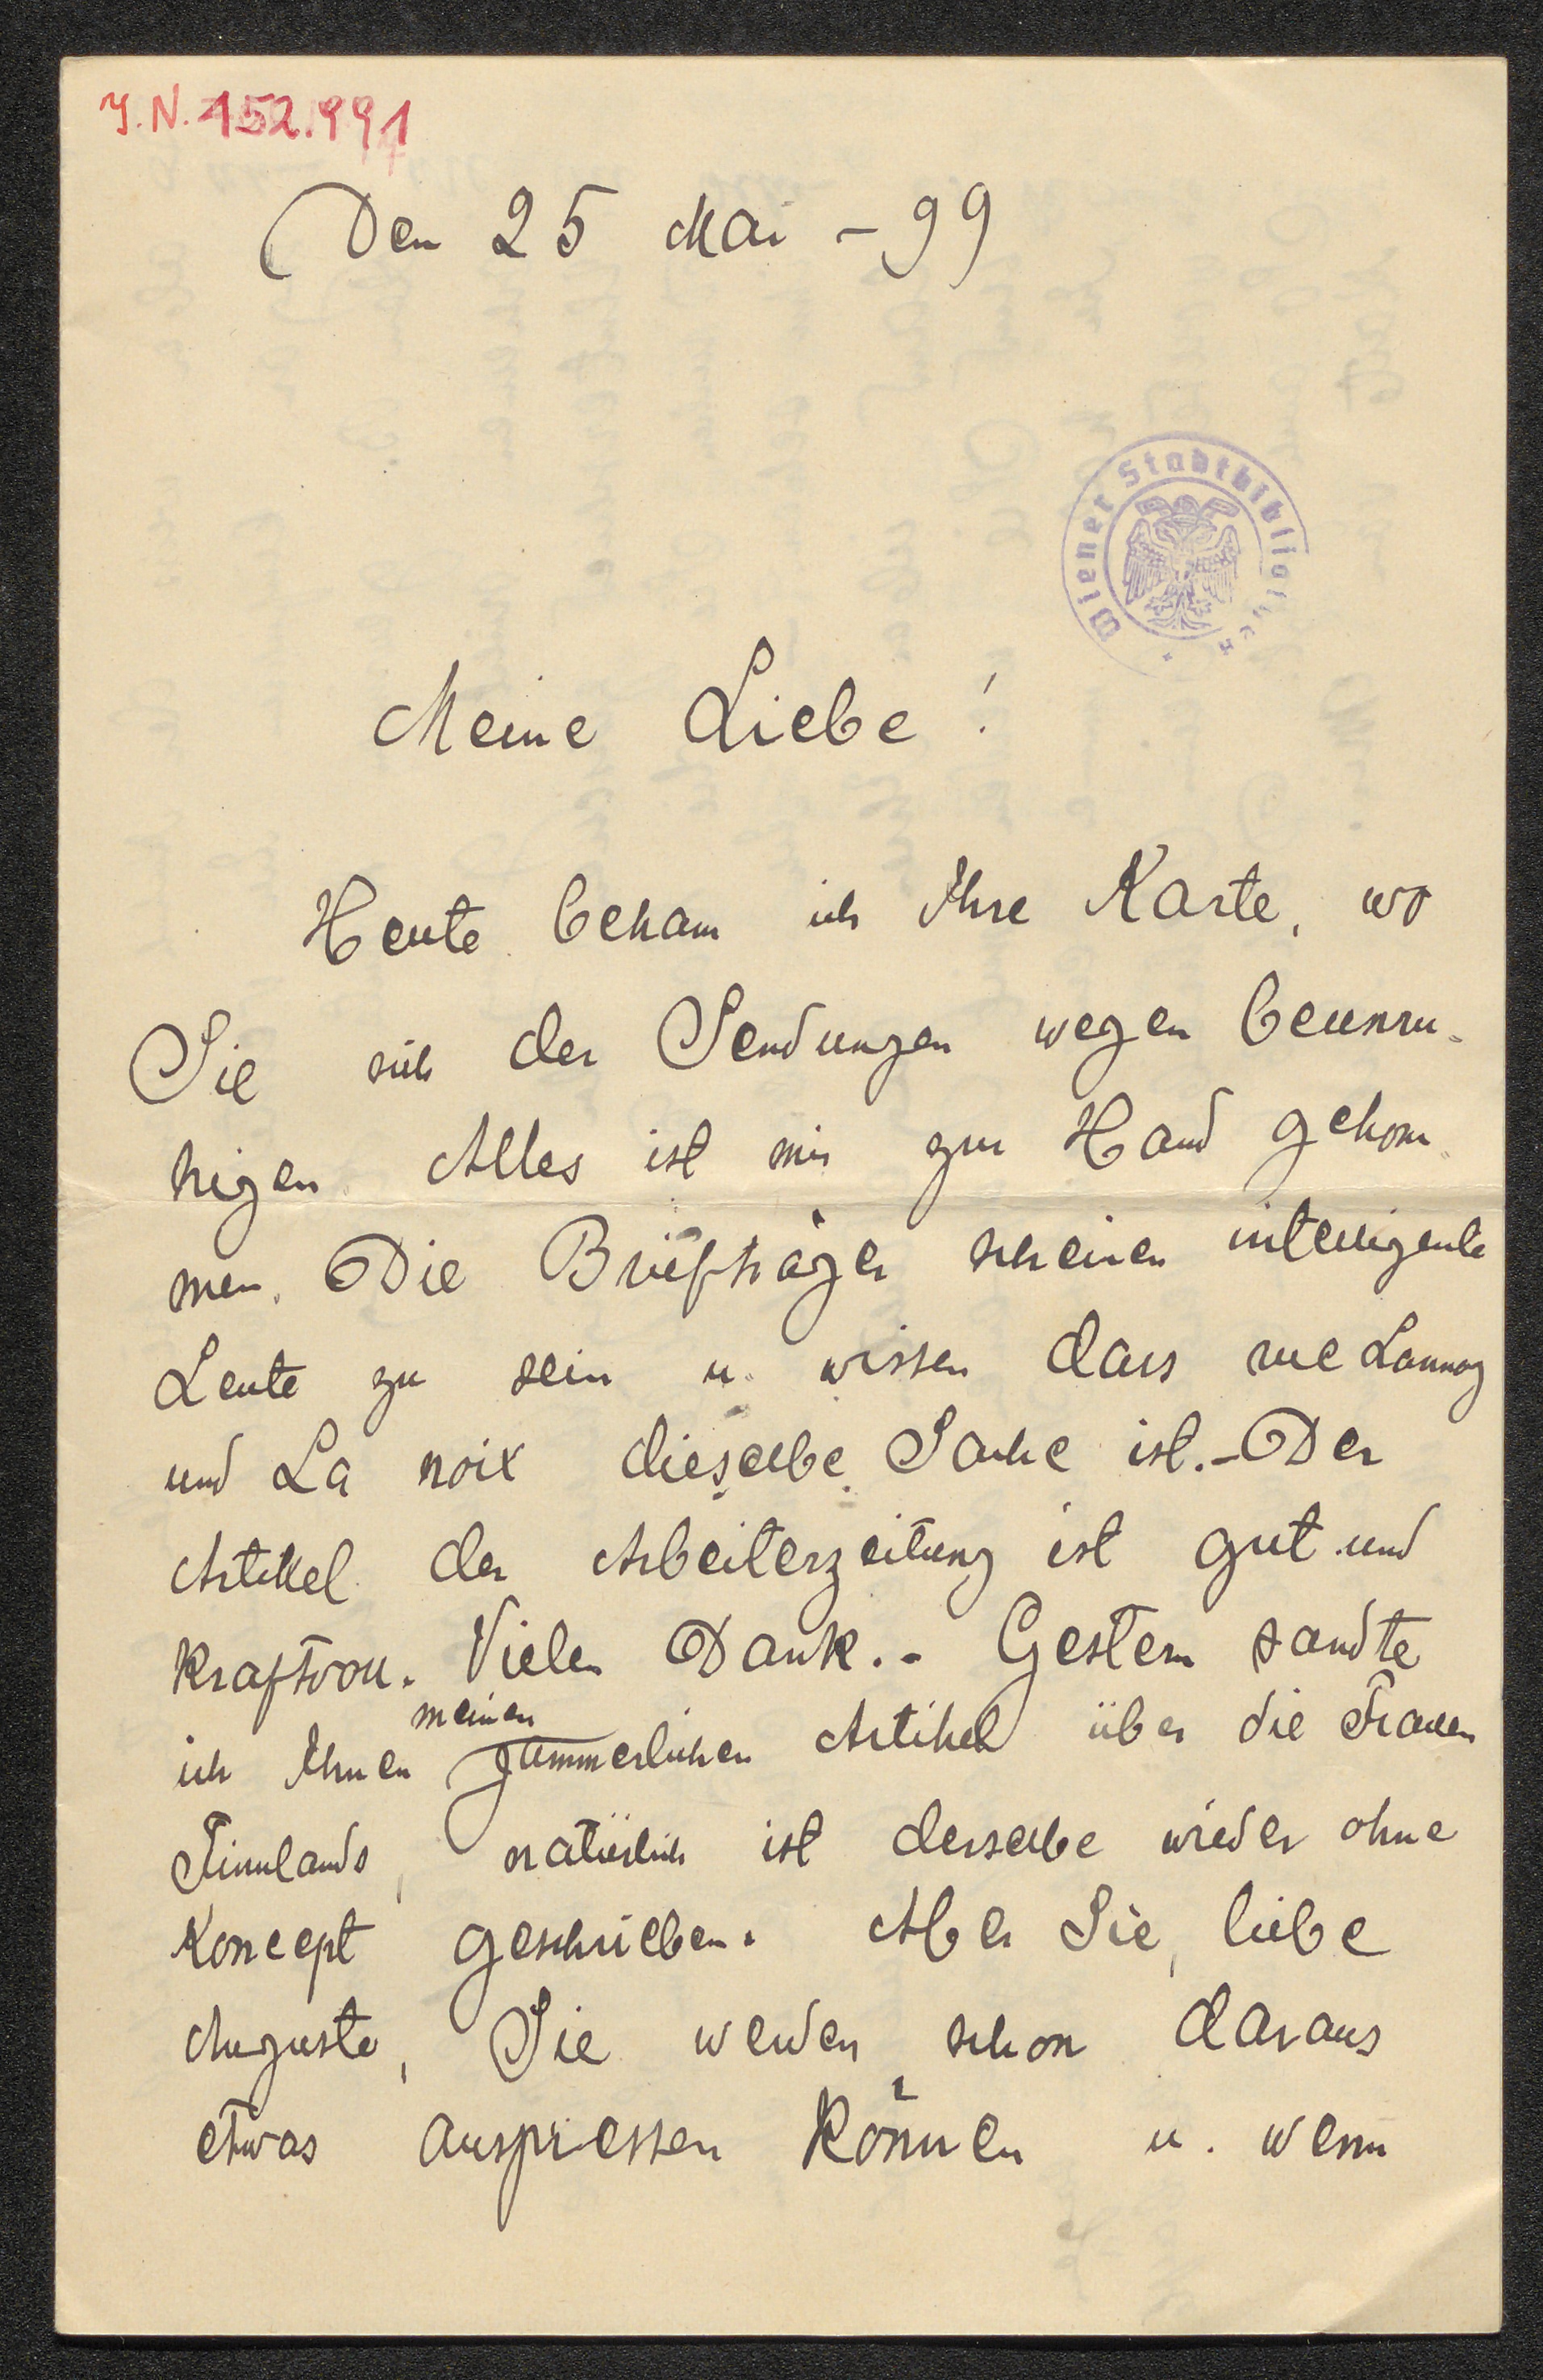 J.N. 152.991
Den 25 Mai - 99
Wiener Stadtbibliothek
Meine Liebe!
Heute bekam ich Ihre Karte, wo
Sie sich der Sendungen wegen beunru-
higen. Alles ist mir zur Hand gekom
men. Die Briefträger scheinen intelligente
Leute zu sein u. wissen dass rue Lannoy
und La noix dieselbe Sache ist. - Der
Artikel der Arbeiterzeitung ist gut und
kraftvoll. Vielen Dank. - Gestern sandte
meinen
ich Ihnen jämmerlichen Artikel über die Frauen
Finnlands, natürlich ist derselbe wieder ohne
Koncept geschrieben. Aber Sie, liebe
Auguste, Sie werden schon daraus
etwas auspressen können u. wenn